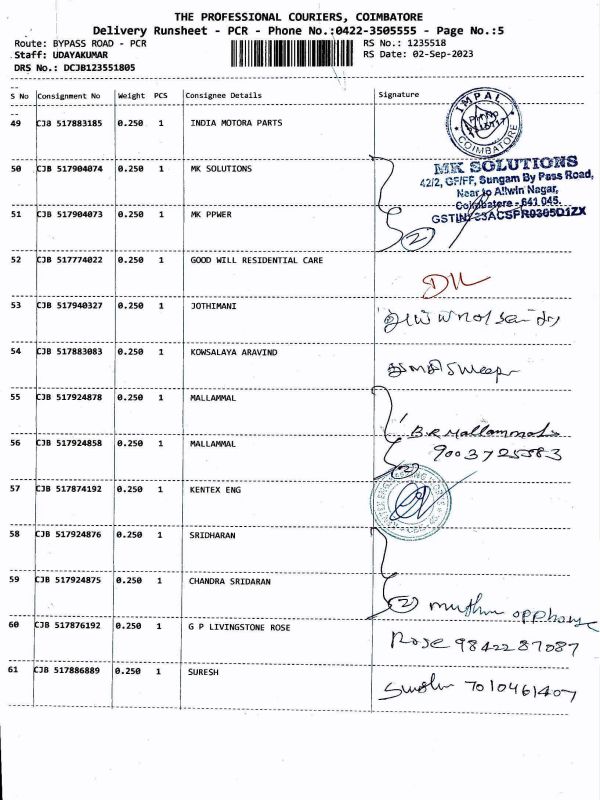 THE PROFESSIONAL COURIERS, COIMBATORE
Delivery Runsheet - PCR - Phone No.:0422-3505555 - Page No.:5
Route: BYPASS ROAD - PCR RS No.: 1235518
Staff: UDAYAKUMAR RS Date: 02-Sep-2023
DRS No.: DCJB123551805
S No Consignment No Weight PCS Consignee Details Signature
49 CJB 517883185 0.250 1 INDIA MOTORA PARTS
IMPAL
COIMBATORE
50 CJB 517904074 0.250 1 MK SOLUTIONS
MK SOLUTIONS
42/2, GF/FF, Sungam By Pass Road,
Near to Allwin Nagar,
Coimbatore - 641 045.
51 CJB 517904073 0.250 1 MK PPWER
GSTIN: 33ACSPR0305D1ZX
2
52 CJB 517774022 0.250 1 GOOD WILL RESIDENTIAL CARE
53 CJB 517940327 0.250 1 JOTHIMANI
54 CJB 517883083 0.250 1 KOWSALAYA ARAVIND
55 CJB 517924878 0.250 1 MALLAMMAL
B.R Mallammal
56 CJB 517924858 0.250 1 MALLAMMAL
9003725583
2
57 CJB 517874192 0.250 1 KENTEX ENG
58 CJB 517924876 0.250 1 SRIDHARAN
59 CJB 517924875 0.250 1 CHANDRA SRIDARAN
2 muthu opp house
60 CJB 517876192 0.250 1 G P LIVINGSTONE ROSE
Rose 9842287087
61 CJB 517886889 0.250 1 SURESH
7010461407